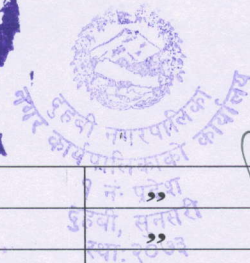 दुहवी नगरपालिका
नगर कार्यपालिकाको कार्यालय
१ नं. प्रदेश
,,
दुहवी, सुनसरी
,,
स्था: २०७३